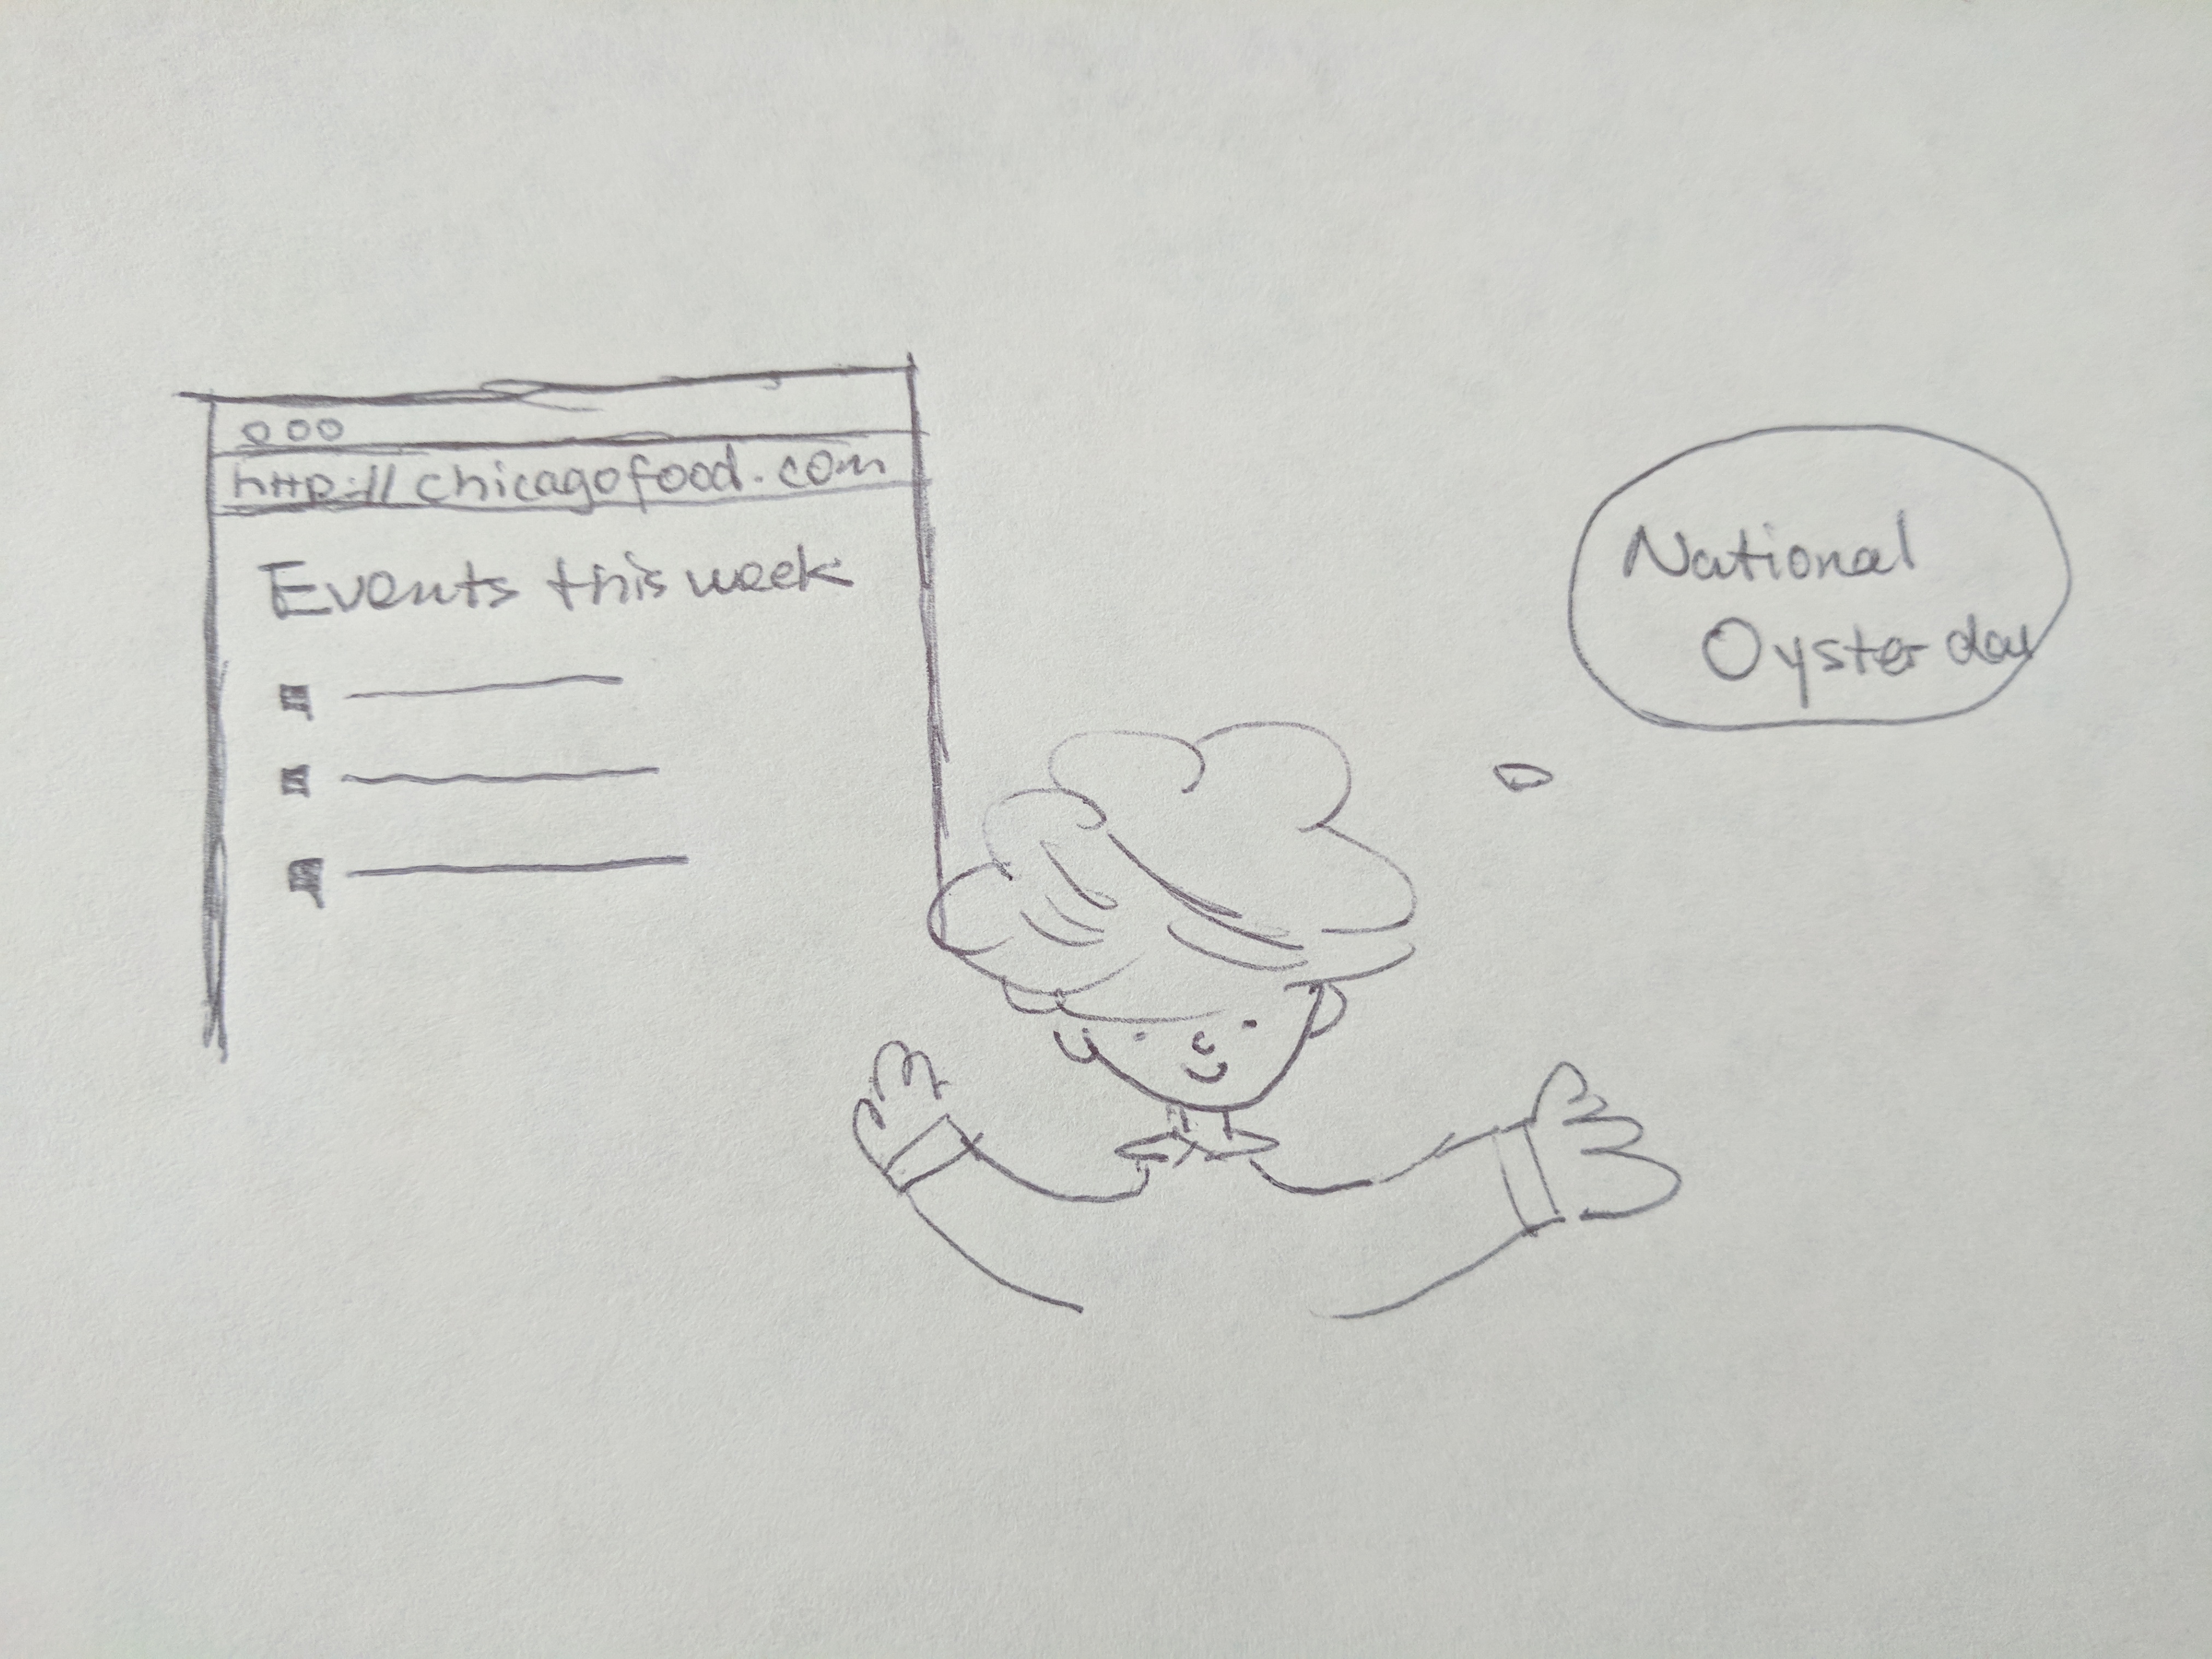 http://chicagofood.com
Events this week
National
Oyster day